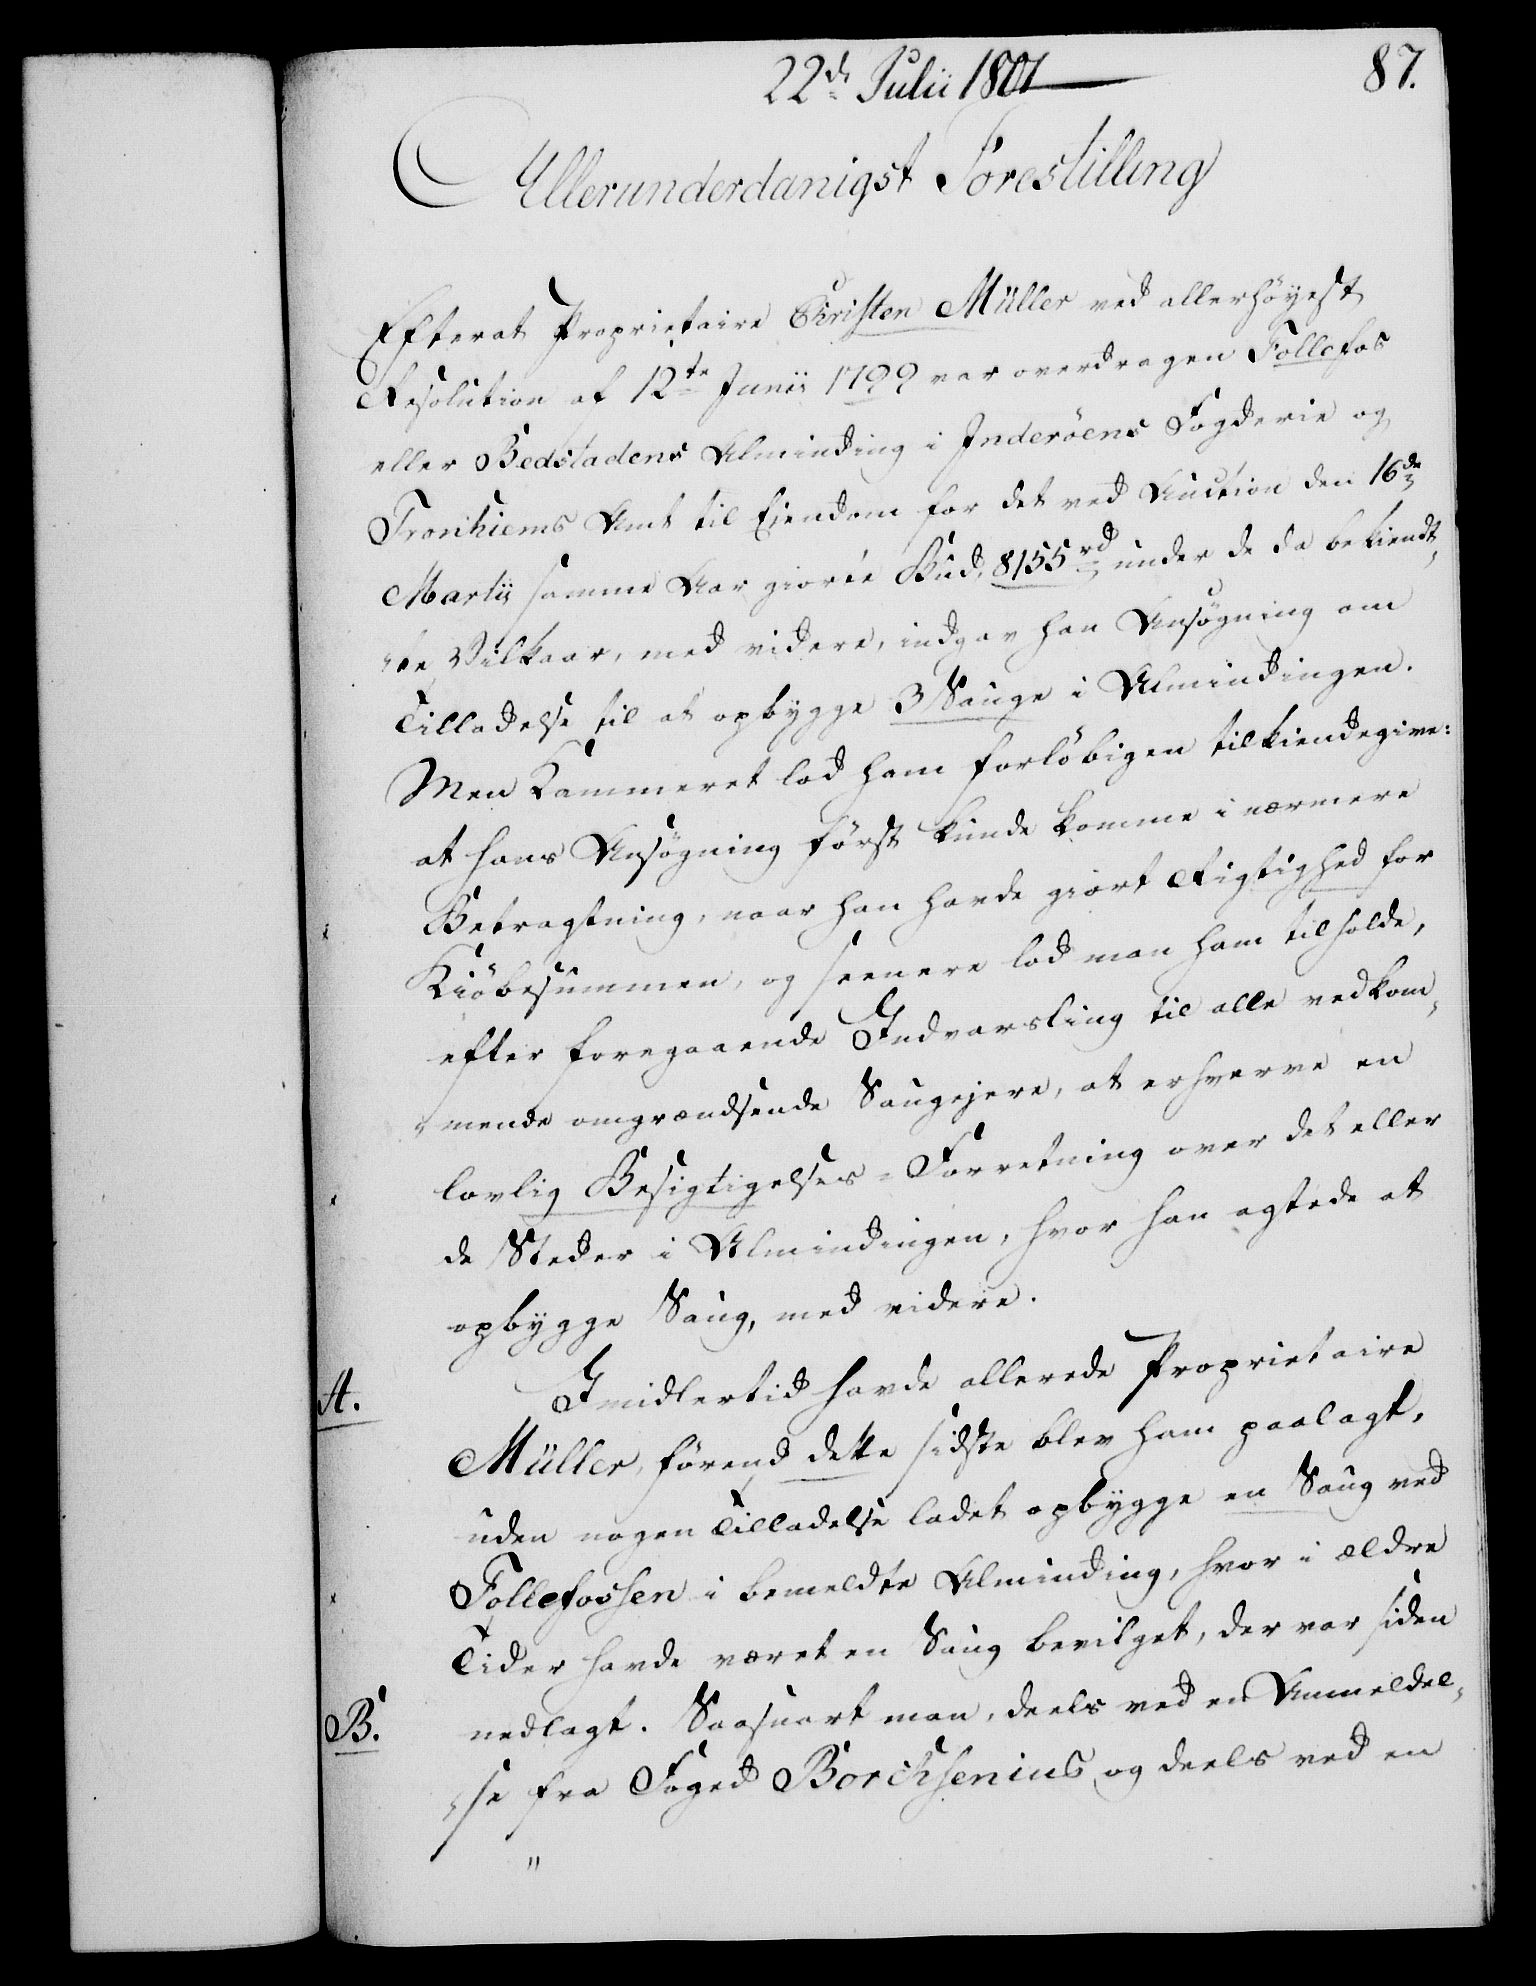 22de Julii 1801
87.
Allerunderdanigst Forestilling
Efterat Proprietaire Christen Müller ved allerhöyest
Resolution af 12te Junii 1799 var overdragen Follefos
eller Bedstadens Alminding i Inderöens Fogderie og
Tronhiems Amt til Eiendom for det ved Auction den 16de
Martii samme Aar giorte Bud, 8155 rd under de da bekiendt„
„te Vilkaar, med videre, indgav han Ansögning om
Tilladelse til at opbygge 3 Sauge i Almindingen.
Men Kammeret lod ham forlöbigen tilkiendegive:
at hans Ansögning först kunde komme i nærmere
Betragtning, naar han havde giort Rigtighed for
Kiöbesummen, og seenere lod man ham tilholde,
efter foregaaende Indvarsling til alle vedkom„
„mende omgrændsende Saugejere, at erhverve en
lovlig Besigtigelses-Forretning over det eller
de Steder i Almindingen, hvor han agtede at
opbygge Saug, med videre.
A.
Imidlertid havde allerede Proprietaire
Müller, förend dette sidste blev ham paalagt,
uden nogen Tilladelse ladet opbygge en Saug ved
Follefossen i bemeldte Alminding, hvor i ældre
Tider havde været en Saug bevilget, der var siden
B.
nedlagt. Saasnart man, deels ved en Anmeldel„
„se fra Foged Borchsenius og deels ved en
"